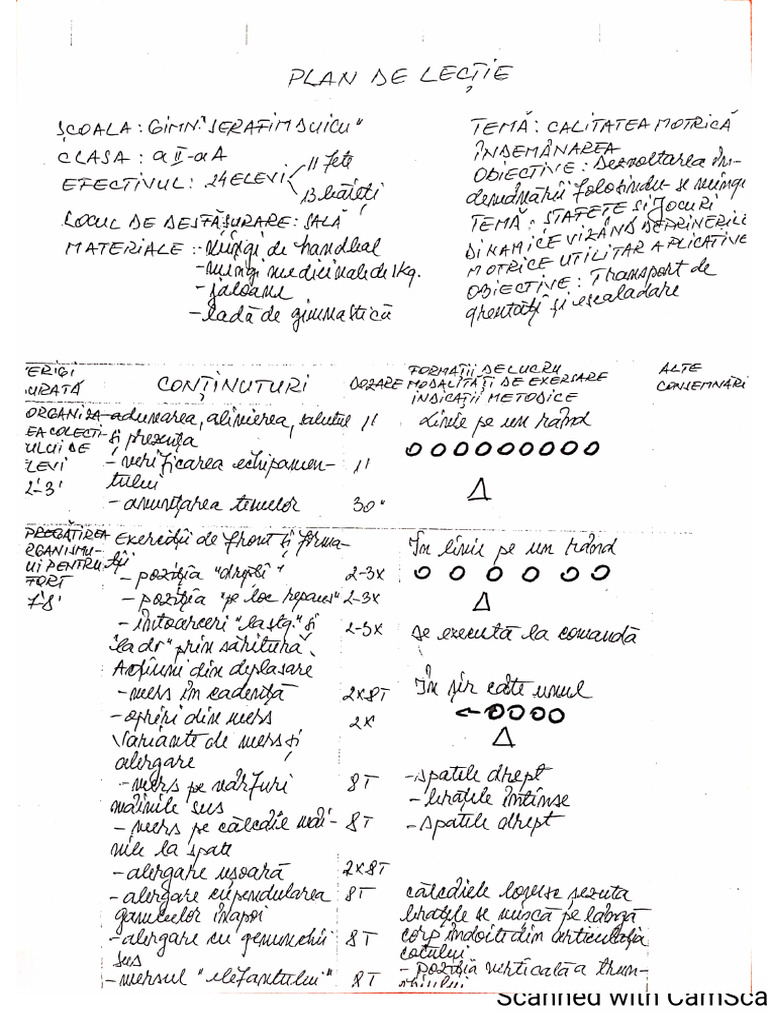 PLAN DE LECȚIE
ȘCOALA: GIMN. "SERAFIM DUICU"
CLASA: a II-a A
EFECTIVUL: 24 ELEVI
11 fete
13 băieți
LOCUL DE DESFĂȘURARE: SALĂ
MATERIALE: - mingi de handbal
- mingi medicinale de 1kg.
- jaloane
- ladă de gimnastică
TEMĂ: CALITATEA MOTRICĂ
ÎNDEMÂNAREA
OBIECTIVE: Dezvoltarea în-
demânării folosindu-se mingi
TEMĂ: ȘTAFETE ȘI JOCURI
DINAMICE VIZÂND DEPRINDERILE
MOTRICE UTILITAR APLICATIVE
OBIECTIVE: Transport de
greutăți și escaladare
ERIGI
URATĂ
CONȚINUTURI
DOZARE
FORMAȚII DE LUCRU
MODALITĂȚI DE EXERSARE
INDICAȚII METODICE
ALTE
CONSEMNĂRI
ORGANIZA- - adunarea, alinierea, salutul 1'
EA COLECTI- și prezența
ULUI DE - verificarea echipamen- 1'
LEVI tului
2'-3' - anunțarea temelor 30"
Linie pe un rând
PREGĂTIREA Exerciții de front și forma-
RGANISMU- ții
UI PENTRU - poziția "drepți" 2-3X
FORT - poziția "pe loc repaus" 2-3X
7'-8' - întoarceri "la stg." și 2-3X
"la dr" prin săritură
În linie pe un rând
se execută la comandă
Acțiuni din deplasare
- mers în cadență 2X8T
- opriri din mers 2X
În șir câte unul
Variante de mers și
alergare
- mers pe vârfuri 8T - spatele drept
mâinile sus - brațele întinse
- mers pe călcâie mâi- 8T - spatele drept
nile la spate
- alergare ușoară 2X8T
- alergare cu pendularea 8T călcâiele lovesc șezuta
gambelor înapoi brațele se mișcă pe lângă
- alergare cu genunchii 8T corp îndoite din articulația
sus cotului
- mersul "elefantului" 8T - poziția verticală a trun-
chiului
Scanned with CamSca